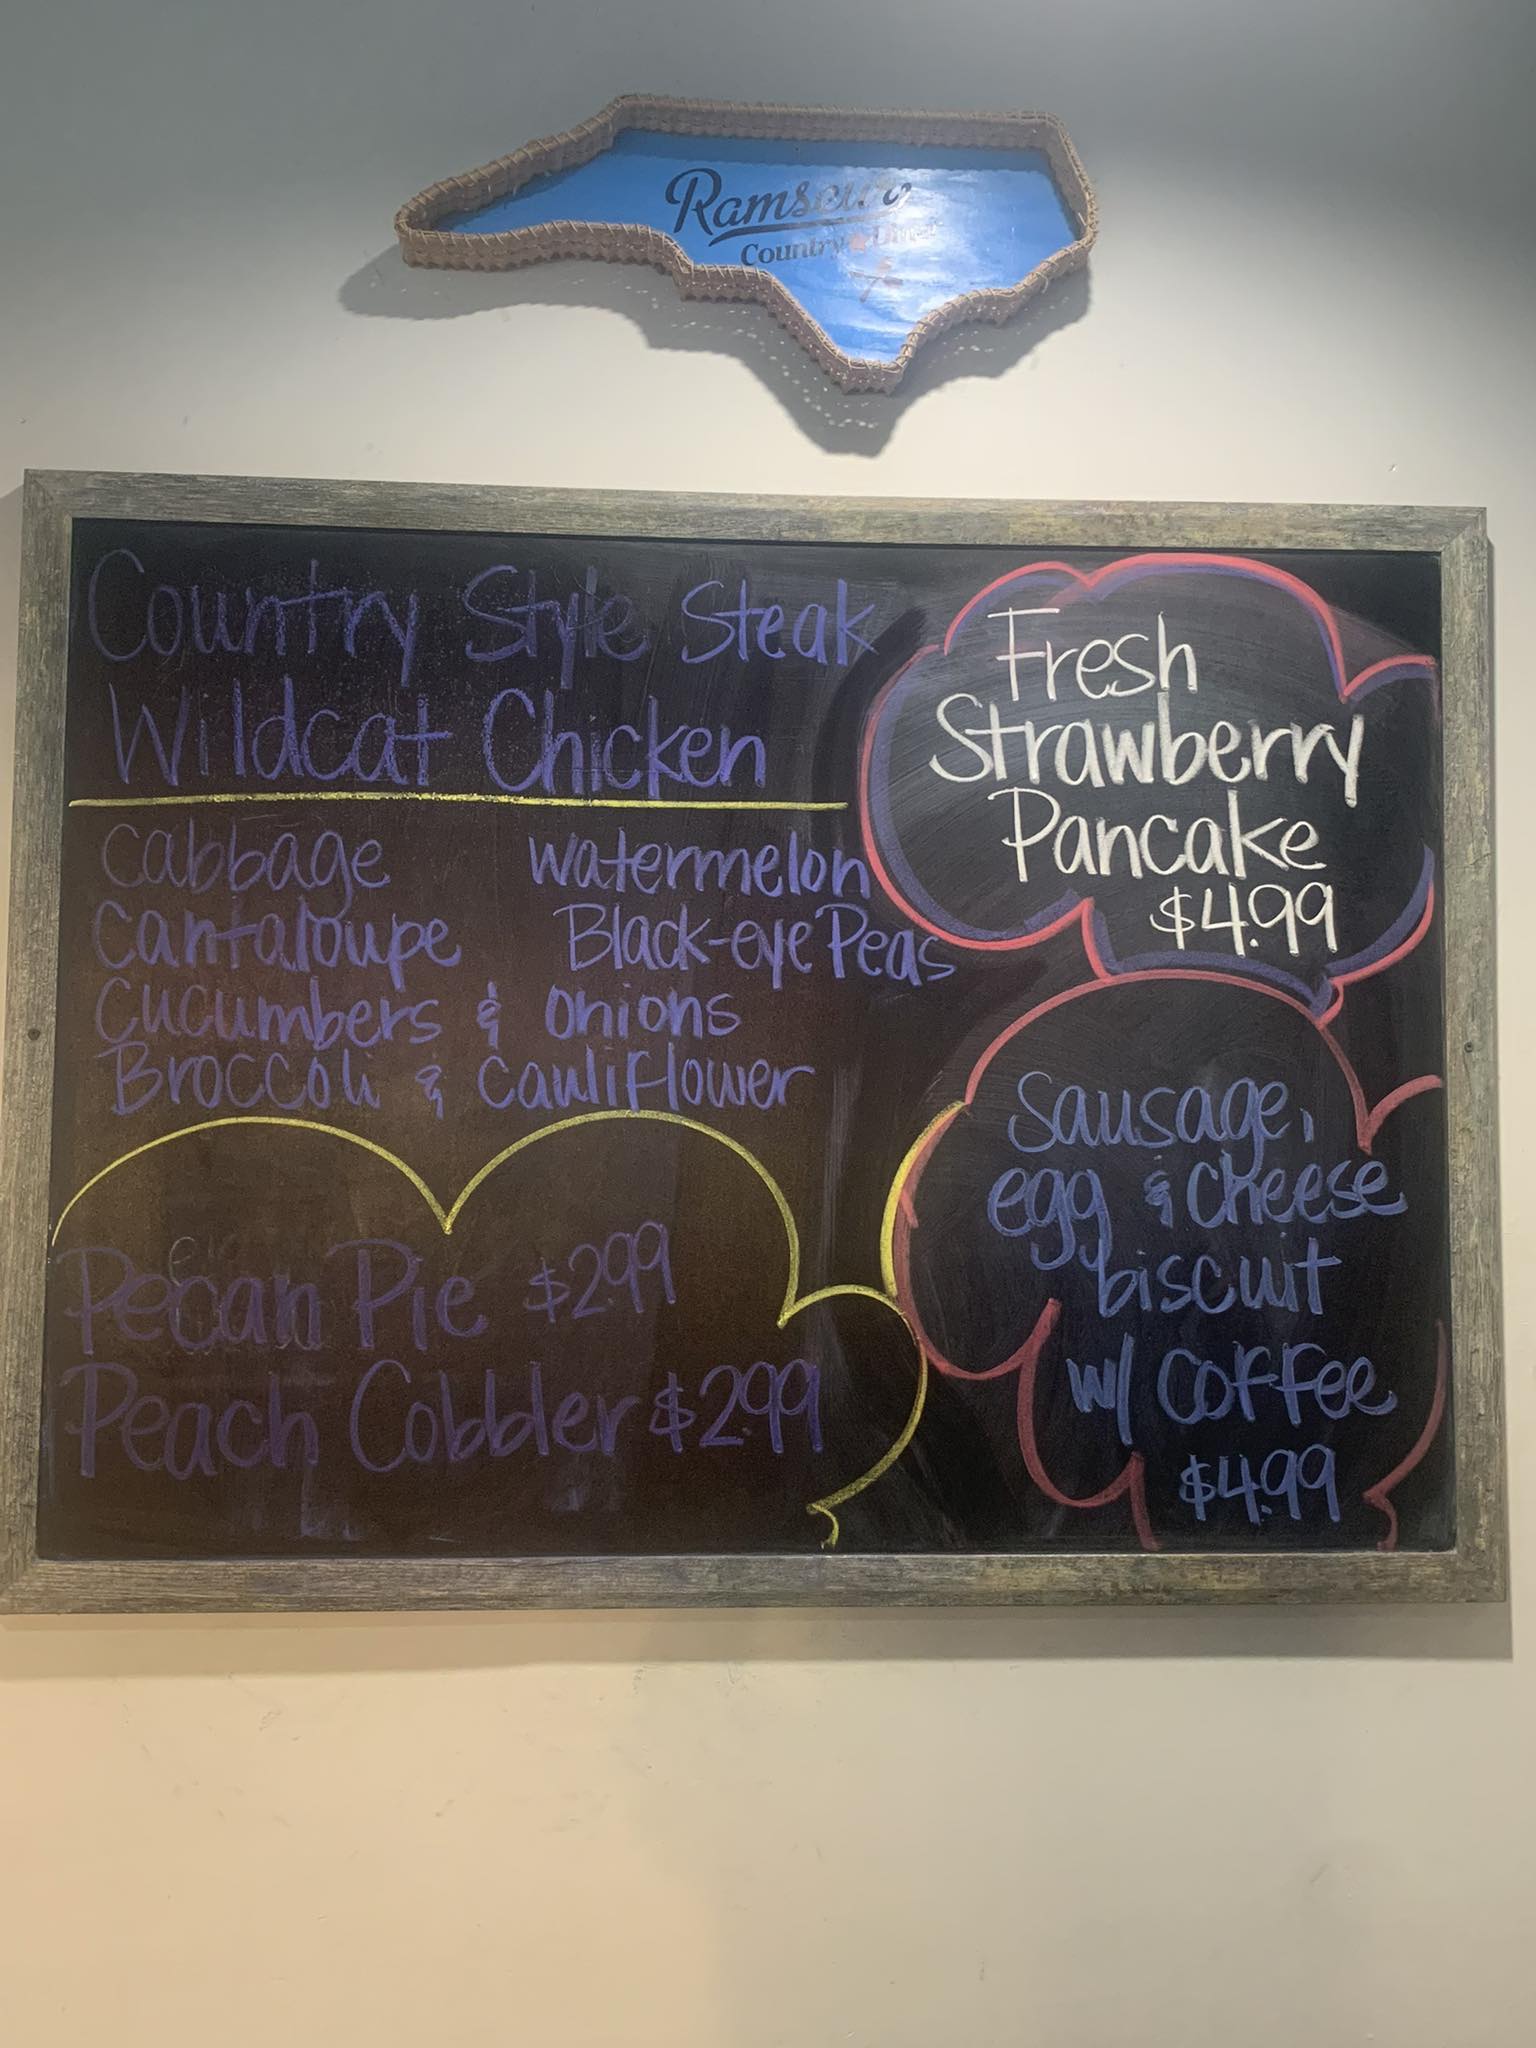 Ramseur
Country Diner
Country Style Steak
Wildcat Chicken
Cabbage Watermelon
Cantaloupe Black-eye Peas
Cucumbers & onions
Broccoli & cauliflower
Pecan Pie $2.99
Peach Cobbler $2.99
Fresh
Strawberry
Pancake
$4.99
Sausage,
egg & cheese
biscuit
w/ coffee
$4.99